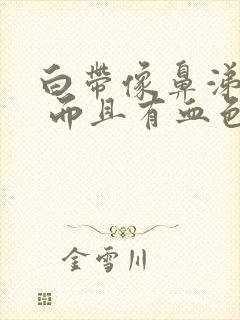 白帶像鼻涕
而且有血色
金雪川